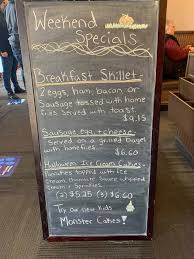 Weekend
Specials
Breakfast Skillet -
2 eggs, ham, bacon or
Sausage tossed with home
fries served with toast.
$9.15
Sausage egg + cheese -
Served on a grilled Bagel
with homefries. $6.60
Halloween Ice Cream Cakes -
Pancakes topped with Ice
Cream, Chocolate Sauce, whipped
cream + Sprinkles.
(2) $5.25 (3) $6.60
Try our new Kids
Monster Cakes!